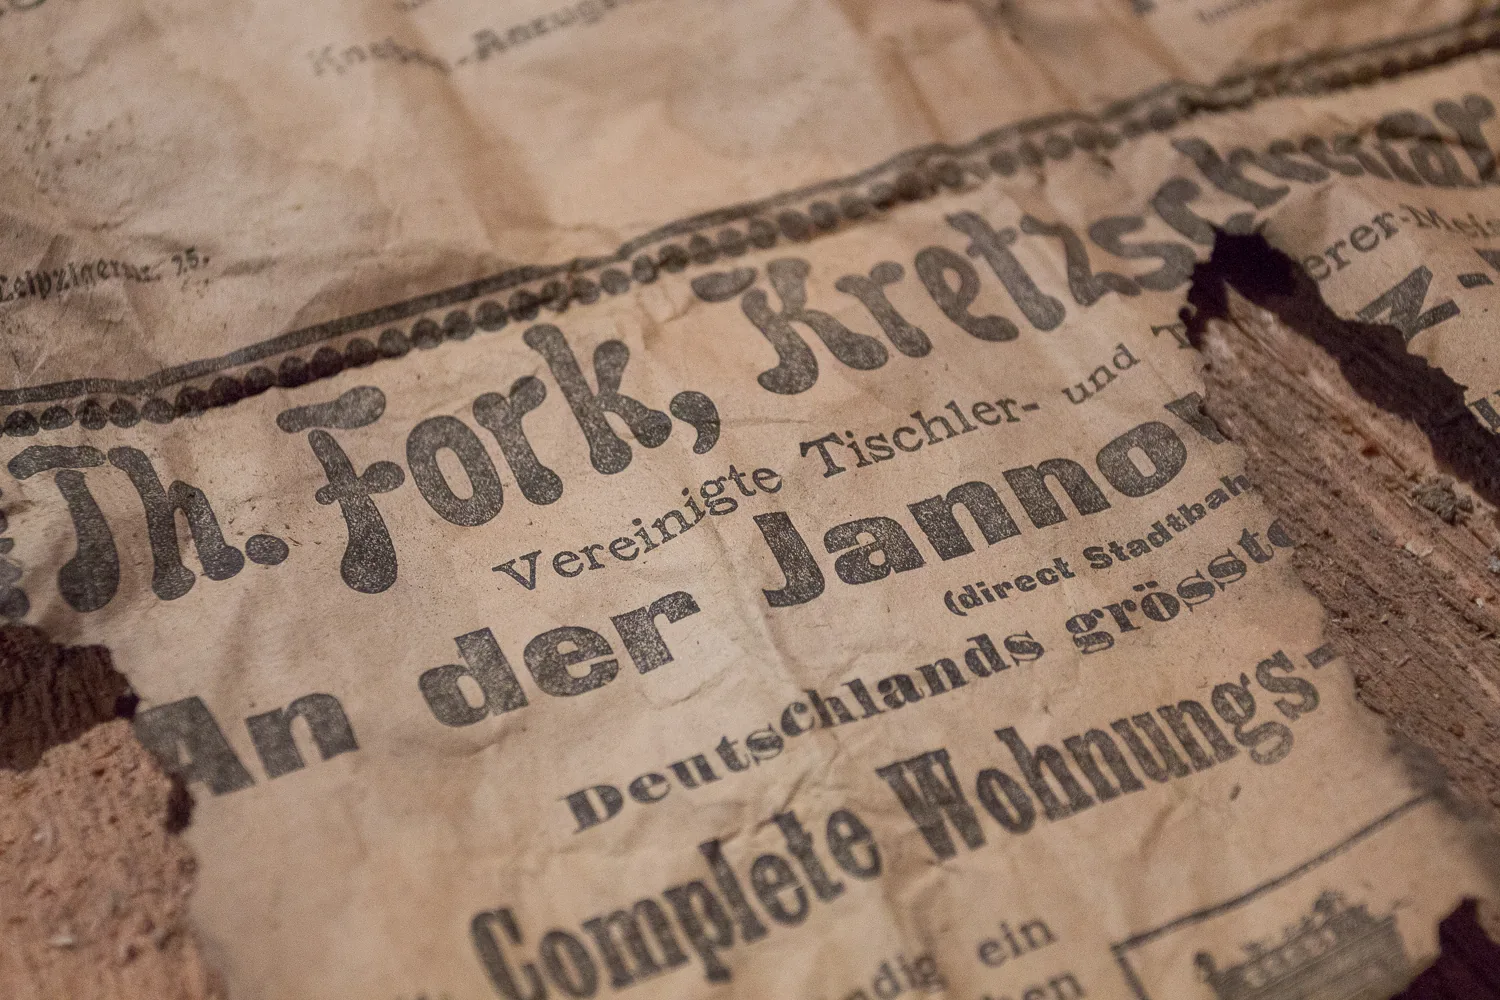 -Anzug
Leipzigerstr. 25.
Th. Fork, Kretzschmar
Vereinigte Tischler- und T erer-Meis
An der Jannow
(direct Stadtbah
Deutschlands grösste
Complete Wohnungs-
ndig ein